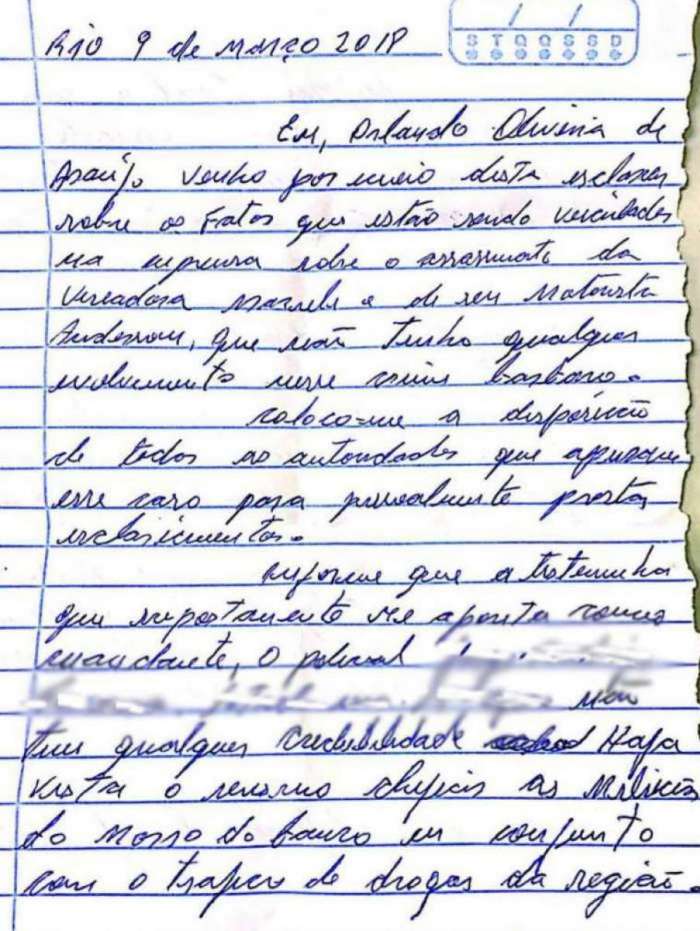 / /
S T Q Q S S D
Rio 9 de março 2018
Eu, Orlando Oliveira de
Araújo venho por meio desta esclarecer
sobre os Fatos que estão sendo veiculados
na imprensa sobre o assassinato da
Vereadora Marielle e de seu Motorista
Anderson, que não tenho qualquer
envolvimento nesse crime barbaro.
coloco-me a disposição
de todas as autoridades que apuram
esse caso para pessoalmente prestar
esclarecimentos.
informe que a testemunha
que supostamente me aponta como
mandante, o policial
não
tem qualquer credibilidade Haja
Vista o mesmo chefiar as Milicia
do Morro do banco em conjunto
com o trafico de drogas da região.